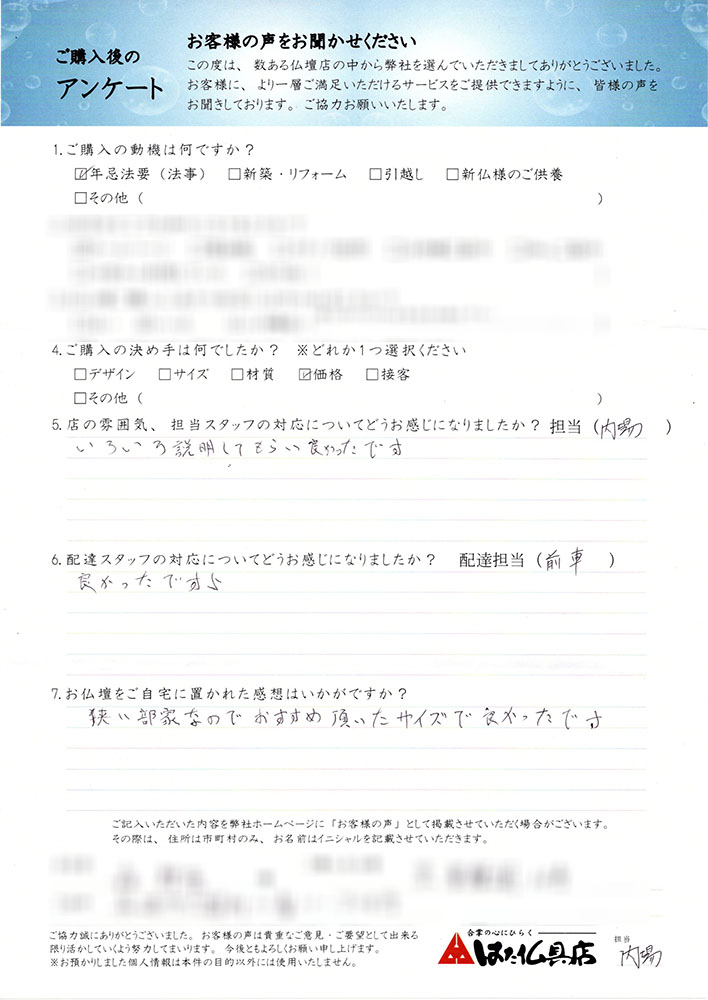 ご購入後の
アンケート
お客様の声をお聞かせください
この度は、数ある仏壇店の中から弊社を選んでいただきましてありがとうございました。
お客様に、より一層ご満足いただけるサービスをご提供できますように、皆様の声を
お聞きしております。ご協力お願いいたします。
1.ご購入の動機は何ですか？
☑年忌法要（法事） □新築・リフォーム □引越し □新仏様のご供養
□その他（ ）
4.ご購入の決め手は何でしたか？ ※どれか1つ選択ください
□デザイン □サイズ □材質 ☑価格 □接客
□その他（ ）
5.店の雰囲気、担当スタッフの対応についてどうお感じになりましたか？担当（内場 ）
いろいろ説明してもらい良かったです
6.配達スタッフの対応についてどうお感じになりましたか？ 配達担当（前車 ）
良かったですよ
7.お仏壇をご自宅に置かれた感想はいかがですか？
狭い部家なのでおすすめ頂いたサイズで良かったです
ご記入いただいた内容を弊社ホームページに「お客様の声」として掲載させていただく場合がございます。
その際は、住所は市町村のみ、お名前はイニシャルを記載させていただきます。
ご協力誠にありがとうございました。お客様の声は貴重なご意見・ご要望として出来る
限り活かしていくよう努力してまいります。今後ともよろしくお願い申し上げます。
※お預かりしました個人情報は本件の目的以外には使用いたしません。
合掌の心にひらく
はた仏具店
担当
内場